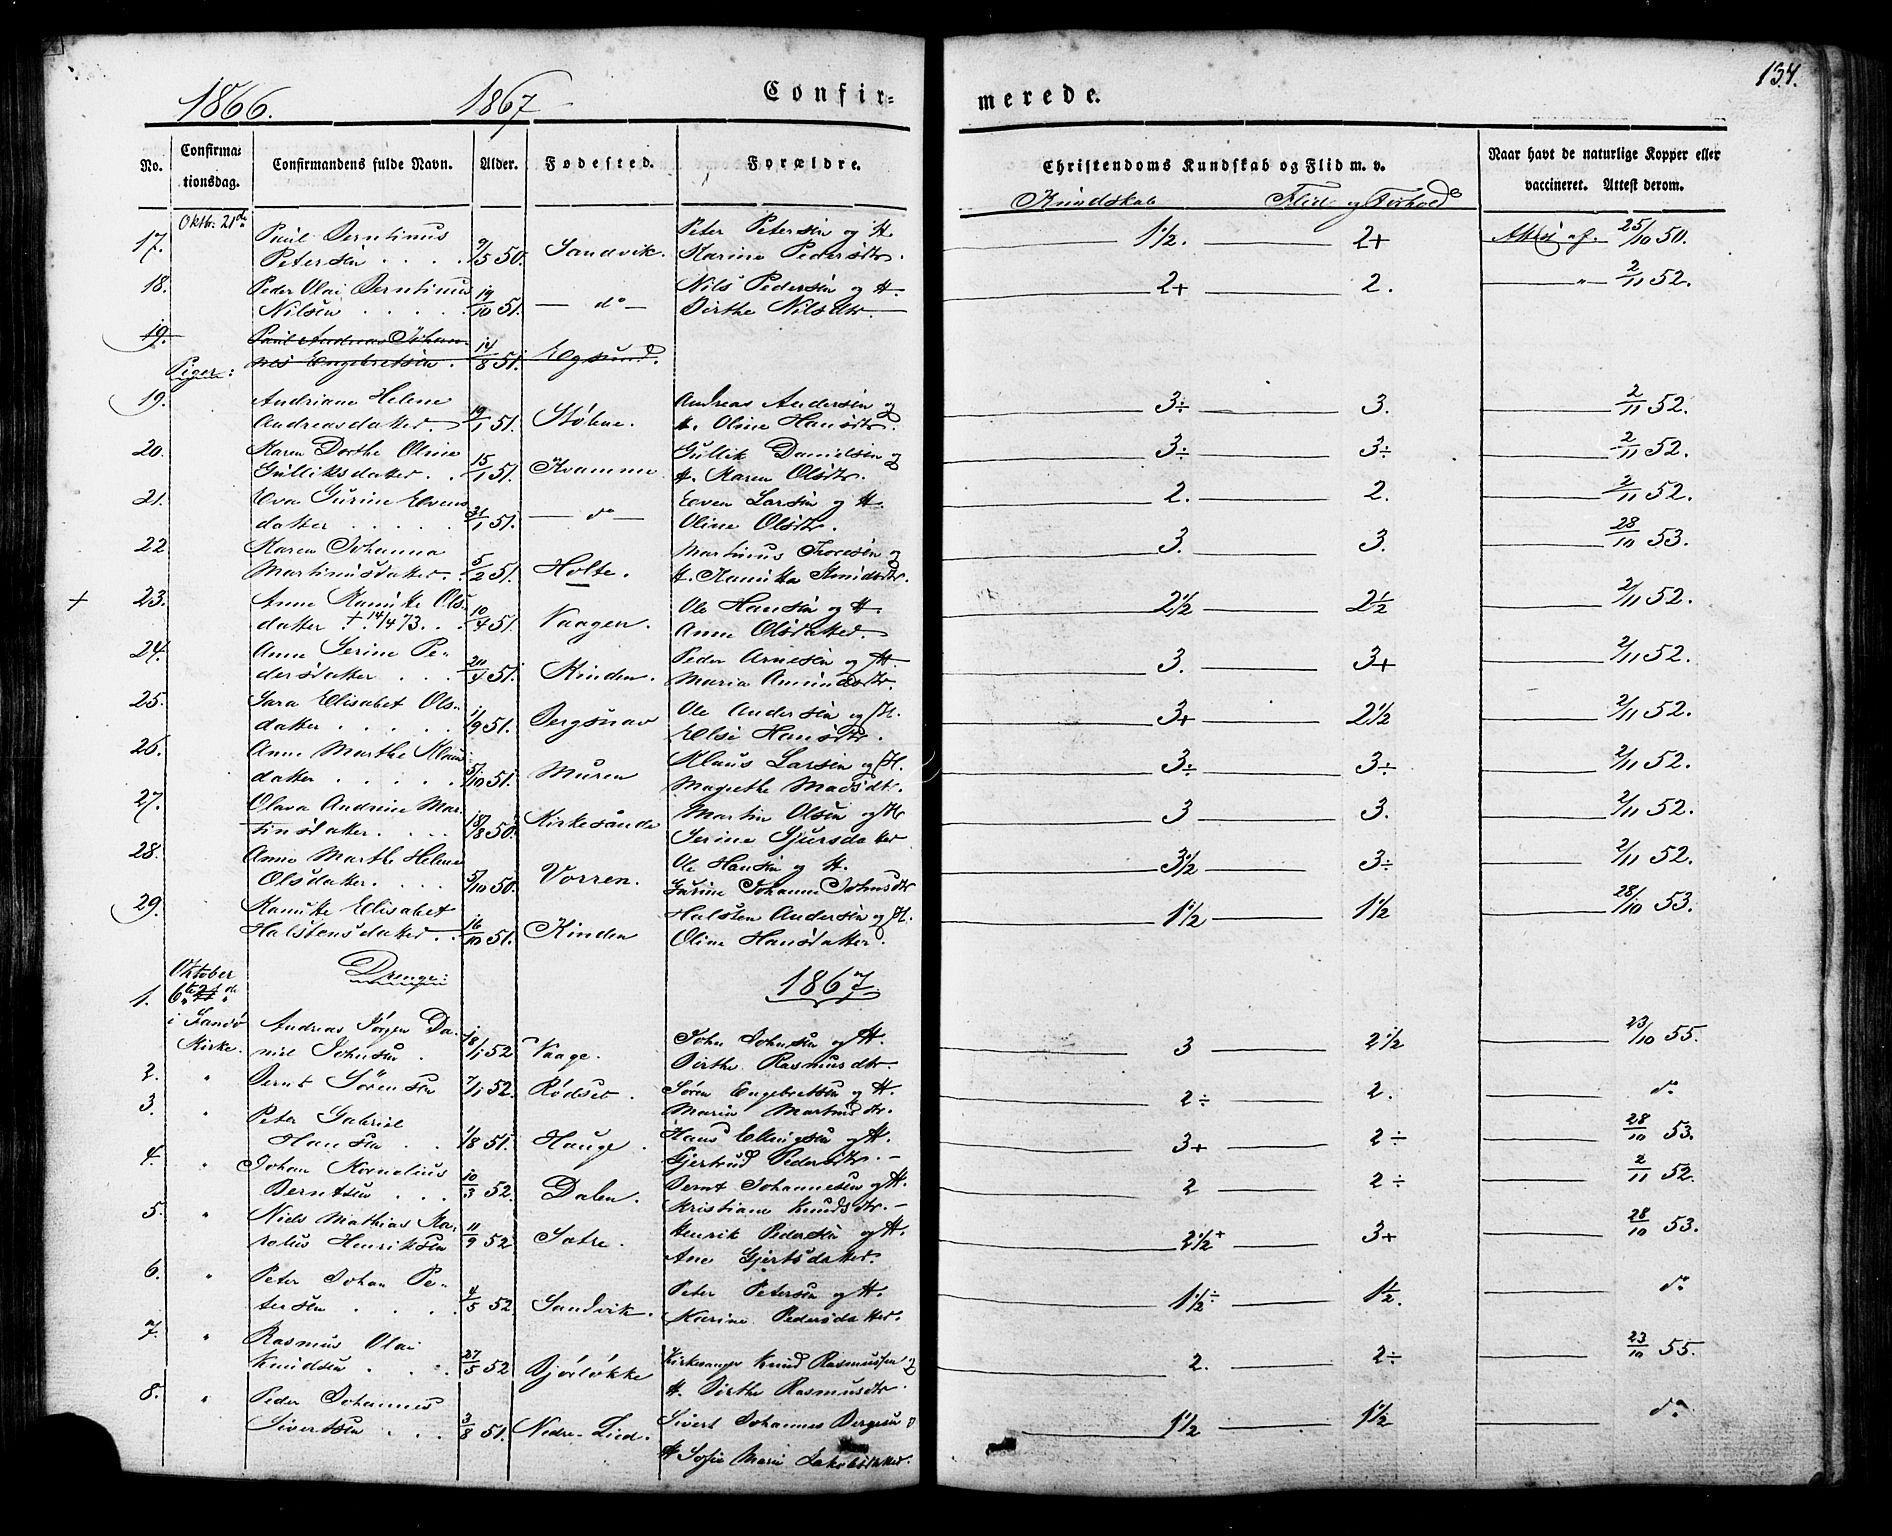 1866. 1867 Confir- merede. 134.
No. Confirmationsdag. Confirmandens fulde Navn. Alder. Fødested. Forældre. Christendoms Kundskab og Flid m. v. Naar havt de naturlige Kopper eller vaccineret. Attest derom.
Kundskab Flid og Forhold
Oktbr. 21de
17. Paul Berntinus Petersen 9/5 50. Sandvik. Peter Petersen og H. Karine Pedersdtr. 1½. 2+ Attest af 25/10 50.
18. Peder Olai Berntinus Nilsen 19/10 51. d° Nils Pedersen og H. Birthe Nilsdtr. 2+ 2. " 2/11 52.
19. Paul Andreas Johannes Engebretsen. 14/8 51. Egsund.
Piger:
19. Andriane Helene Andreasdatter. 19/1 51. Støbne. Andreas Andersen og H. Oline Hansdtr. 3÷ 3. 2/11 52.
20. Karen Dorthe Oline Gulliksdatter. 15/1 51. Kvamme Gullik Danielsen og H. Karen Olsdtr. 3÷ 3÷ 2/11 52.
21. Eva Gurine Evensdatter 31/1 51. d° Even Larsen og H. Oline Olsdtr. 2. 2. 2/11 52.
22. Karen Johanna Martinusdatter. 5/2 51. Holte. Martinus
og H. 3. 3. 28/10 53.
+ 23. Anne Olsdatter. + 14/4 73. 10/4 51. Vaagen. Ole Hansen og H. Anne Olsdatter. 2½ 2½ 2/11 52.
24. Anne Serine Pedersdatter 20/4 51. Kinden. Peder Arnesen og H. Maria Amundsdtr. 3. 3+ 2/11 52.
25. Sara Elisabet Olsdatter 1/9 51. Bergsnav Ole Andersen og H. Else Hansdtr. 3+ 2½ 2/11 52.
26. Anne Marthe Klausdatter 5/10 51. Muren Klaus Larsen og H. Magrethe Madsdt. 3÷ 3÷ 2/11 52.
27. Olava Andrine Martinsdatter. 18/8 50. Kirkesande Martin Olsen og H. Serine Sjursdatter 3 3. 2/11 52.
28. Anne Marthe Helene Olsdatter. 5/10 50. Vorren. Ole Hansen og H. Gurine Johanne Johnsdtr 3½ 3÷ 2/11 52.
29. Elisabet Halstensdatter. 16/10 51. Kinden Halsten Andersen og H. Oline Hansdatter. 1½ 1½ 28/10 53.
Oktober 6te i Sandø Kirke. Drenge: 1867
1. Andreas Jørgen Daniel Johnsen. 18/1 52 Vaage. John Johnsen og H. Birthe Rasmusdtr. 3 2½ 23/10 55.
2. " Bernt Sörensen 7/1 52. Rödset. Søren Engebretsen og H. Marin Martinsdtr. 2÷ 2. d°
3. " Peter Gabriel Hansen 1/8 51. Hauge. Hans Ellingsen og H. Gjertrud Pedersdtr. 3+ 2÷ 28/10 53.
4. " Johan Kornelius Berntsen 10/3 52. Dalen. Bernt Johannesen og H. Kristiane Knudsdtr. 2 2÷ 2/11 52.
5. " Niels Mathias Karolus Henriksen 11/9 52 Satre. Henrik Pedersen og H. Ane Gjertsdatter. 2½+ 3+ 28/10 53.
6. " Peter Johan Petersen 4/5 52 Sandvik. Peter Petersen og H. Karine Pedersdatter. 1½÷ 1½. d°
7. " Rasmus Olai Knudsen 27/5 52 Bjørløkke Kirkesanger Knud Rasmussen og H. Birthe Rasmusdtr. 2. 2÷ 23/10 55.
8. " Peder Johannes Sivertsen 3/8 51. Nedre-Lied. Sivert Johannes Bergesen og H. Sofie Marie Jakobsdatter. 1½ 1½ d°